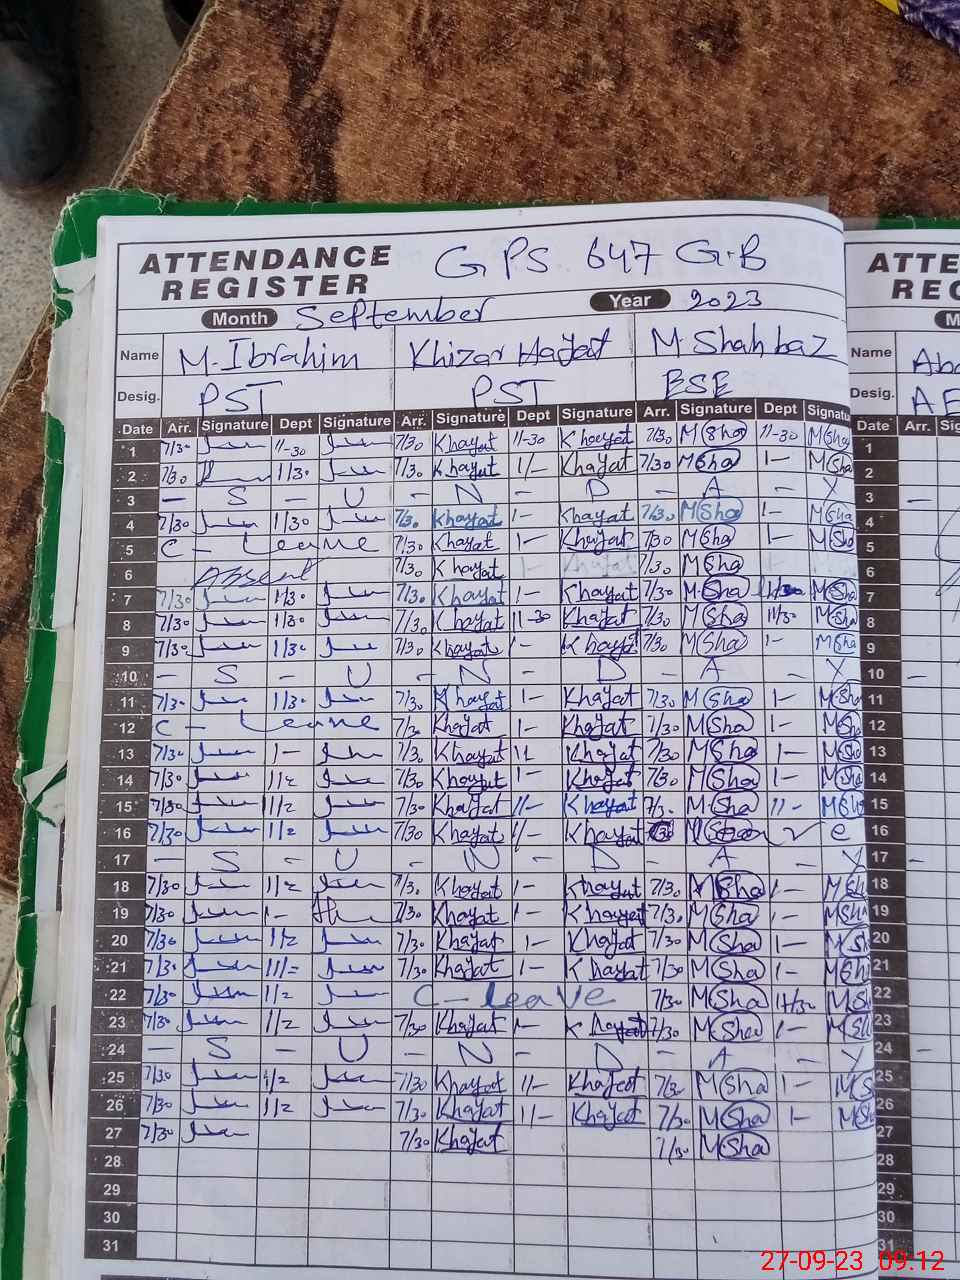 ATTENDANCE REGISTER GPS 647 G.B
Month September Year 2023
Name M. Ibrahim Khizar Hayat M. Shahbaz
Desig. PST PST ESE
Date Arr. Signature Dept Signature Arr. Signature Dept Signature Arr. Signature Dept Signatu
1 7/30 11-30 7/30 Khayat 11-30 Khayat 7/30 M Sha 11-30 M Sha
2 7/30 11/30 7/30 Khayat 1/- Khayat 7/30 M Sha 1- M Sha
3 - S - U - N - D - A - Y
4 7/30 11/30 7/30 Khayat 1- Khayat 7/30 M Sha 1- M Sha
5 C - Leave 7/30 Khayat 1- Khayat 7/30 M Sha 1- M Sha
6 Absent 7/30 Khayat 1- Khayat 7/30 M Sha
7 7/30 11/30 7/30 Khayat 1- Khayat 7/30 M. Sha 11/30 M Sha
8 7/30 11/30 7/30 Khayat 11-30 Khayat 7/30 M Sha 11/30 M Sha
9 7/30 11/30 7/30 Khayat 1- Khayat 7/30 M Sha 1- M Sha
10 - S - U - N - D - A - Y
11 7/30 11/30 7/30 Khayat 1- Khayat 7/30 M Sha 1- M Sha
12 C - Leave 7/30 Khayat 1- Khayat 7/30 M Sha 1- M Sha
13 7/30 1- 7/30 Khayat 11 Khayat 7/30 M Sha 1- M Sha
14 7/30 11/2 7/30 Khayat 1- Khayat 7/30 M Sha 1- M Sha
15 7/30 11/2 7/30 Khayat 11- Khayat 7/30 M. Sha 11- M Sha
16 7/30 11/2 7/30 Khayat 1/- Khayat
17 - S - U - N - D - A - Y
18 7/30 11/2 7/30 Khayat 1- Khayat 7/30 M Sha 1- M Sh
19 7/30 1- 7/30 Khayat 1- Khayat 7/30 M Sha 1- M Sh
20 7/30 11/2 7/30 Khayat 1- Khayat 7/30 M Sha 1- M S
21 7/30 11/2 7/30 Khayat 1- Khayat 7/30 M Sha 1- M Sh
22 7/30 11/2 C - Leave 7/30 M Sha 11/30 M S
23 7/30 11/2 7/30 Khayat 1- Khayat 7/30 M Sha 1- M Sh
24 - S - U - N - D - A - Y
25 7/30 11/2 7/30 Khayat 11- Khayat 7/30 M Sha 1- M S
26 7/30 11/2 7/30 Khayat 1/- Khayat 7/30 M Sha 1- M Sh
27 7/30 7/30 Khayat 7/30 M Sha
28
29
30
31
ATTE
REG
M
Name Aba
Desig. AE
Date Arr. Sig
1
2
3 -
4
5
6
7
8
9
10 -
11
12
13
14
15
16
17 -
18
19
20
21
22
23
24 -
25
26
27
28
29
30
31
27-09-23 09:12